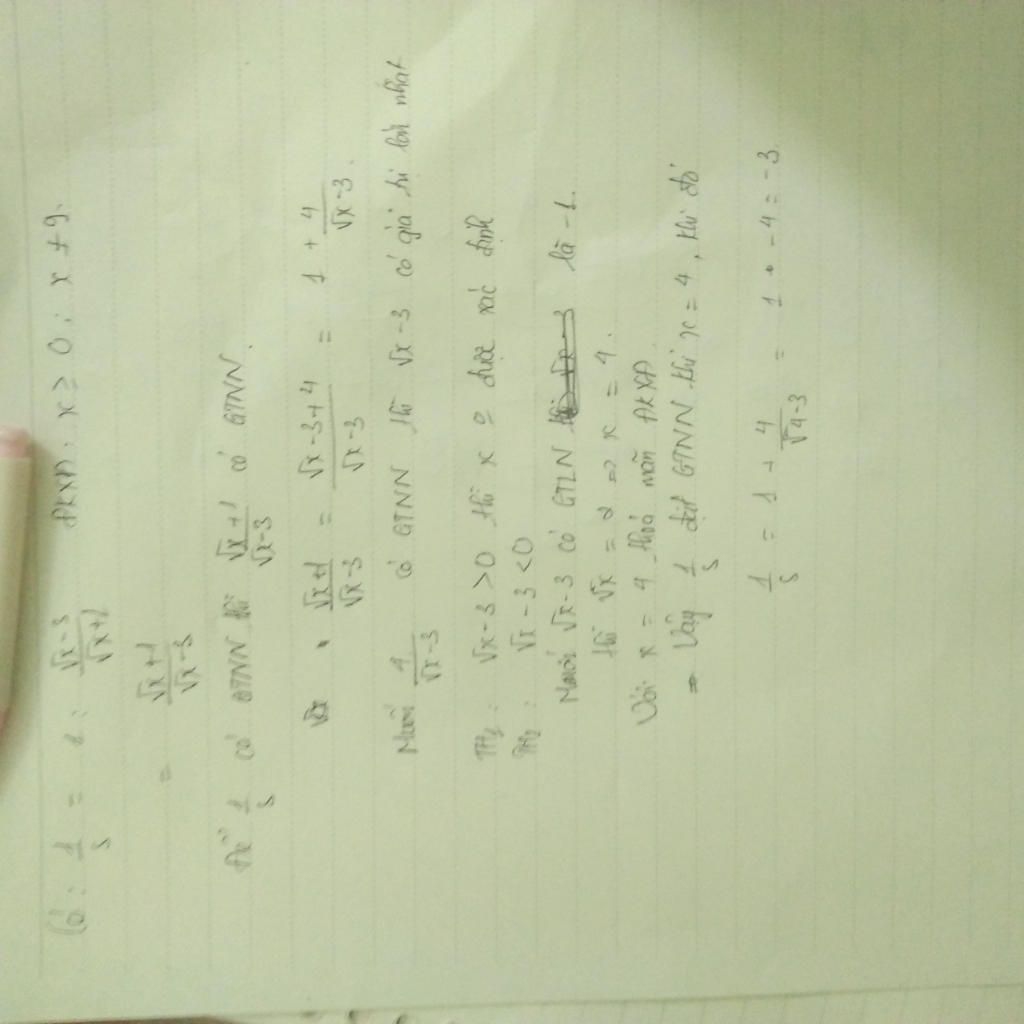 Có: 1/S = 1 : (√x-3)/(√x+1) ĐKXĐ: x ≥ 0; x ≠ 9.
= (√x+1)/(√x-3)
Để 1/S có GTNN thì (√x+1)/(√x-3) có GTNN.
(√x+1)/(√x-3) = (√x-3+4)/(√x-3) = 1 + 4/(√x-3).
Muốn 4/(√x-3) có GTNN thì √x-3 có giá trị lớn nhất
TH1: √x-3 > 0 thì x 0 được xác định
TH2: √x-3 < 0
Muốn √x-3 có GTLN là -1.
thì √x = 2 => x = 4.
Với x = 4 thoả mãn ĐKXĐ.
=> Vậy 1/S đạt GTNN khi x = 4, khi đó
1/S = 1 + 4/(√4-3) = 1 + -4 = -3